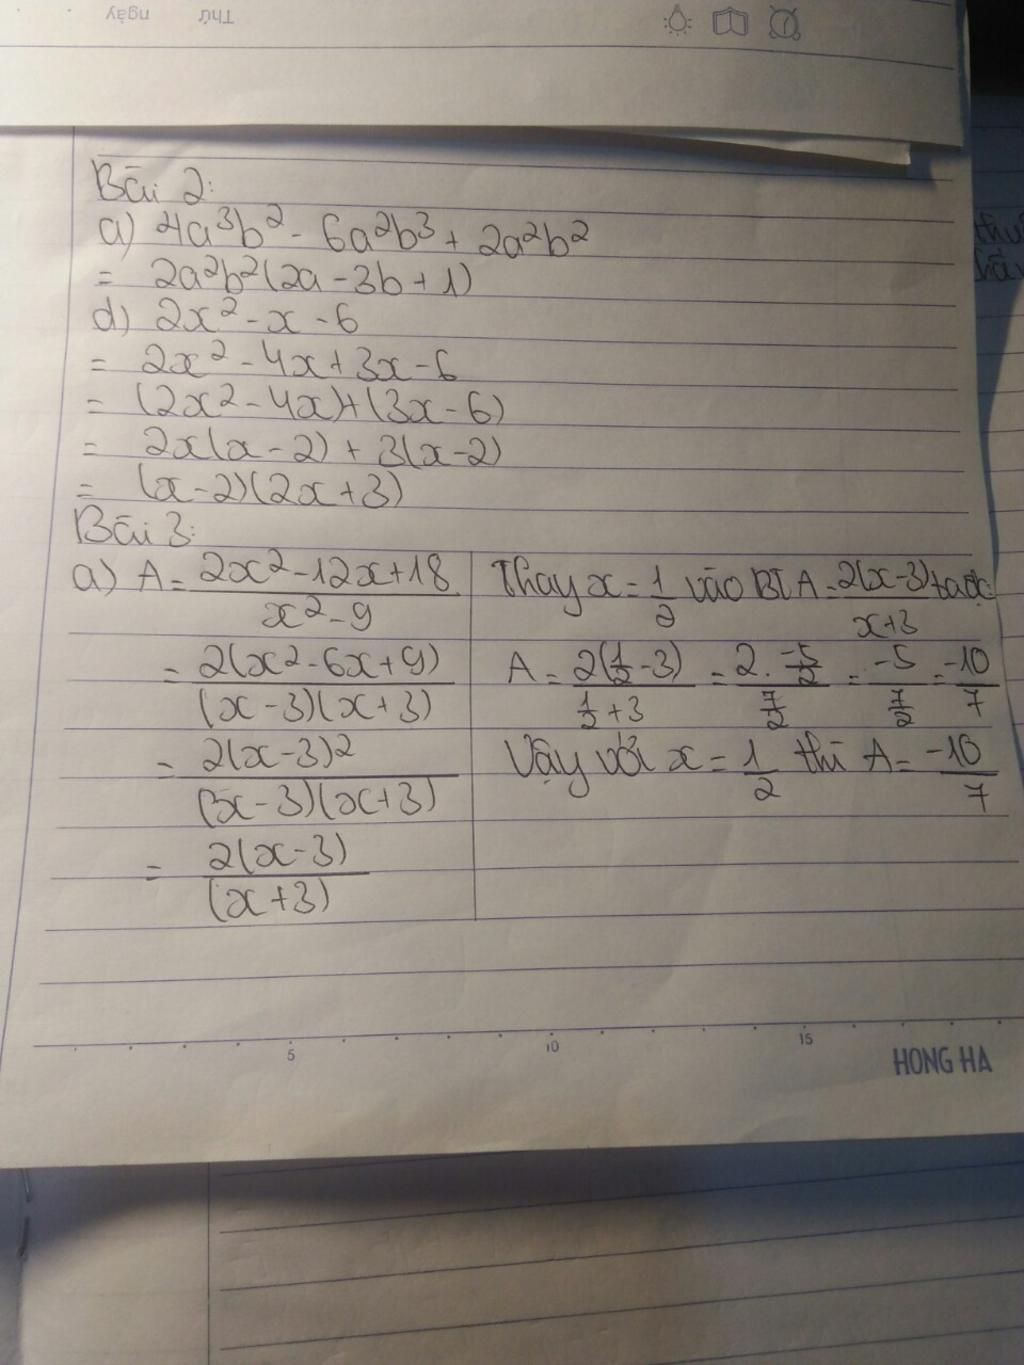 Thứ
ngày
Bài 2:
a) 4a³b² - 6a²b³ + 2a²b²
= 2a²b²(2a - 3b + 1)
d) 2x² - x - 6
= 2x² - 4x + 3x - 6
= (2x² - 4x) + (3x - 6)
= 2x(x - 2) + 3(x - 2)
= (x - 2)(2x + 3)
Bài 3:
a) A = (2x² - 12x + 18)/(x² - 9)
= 2(x² - 6x + 9)/((x - 3)(x + 3))
= 2(x - 3)²/((x - 3)(x + 3))
= 2(x - 3)/(x + 3)
Thay x = 1/2 vào BT A = 2(x - 3)/(x + 3) ta đc
A = 2(1/2 - 3)/(1/2 + 3) = (2 . -5/2)/(7/2) = -5/(7/2) = -10/7
Vậy với x = 1/2 thì A = -10/7
5 10 15
HONG HA